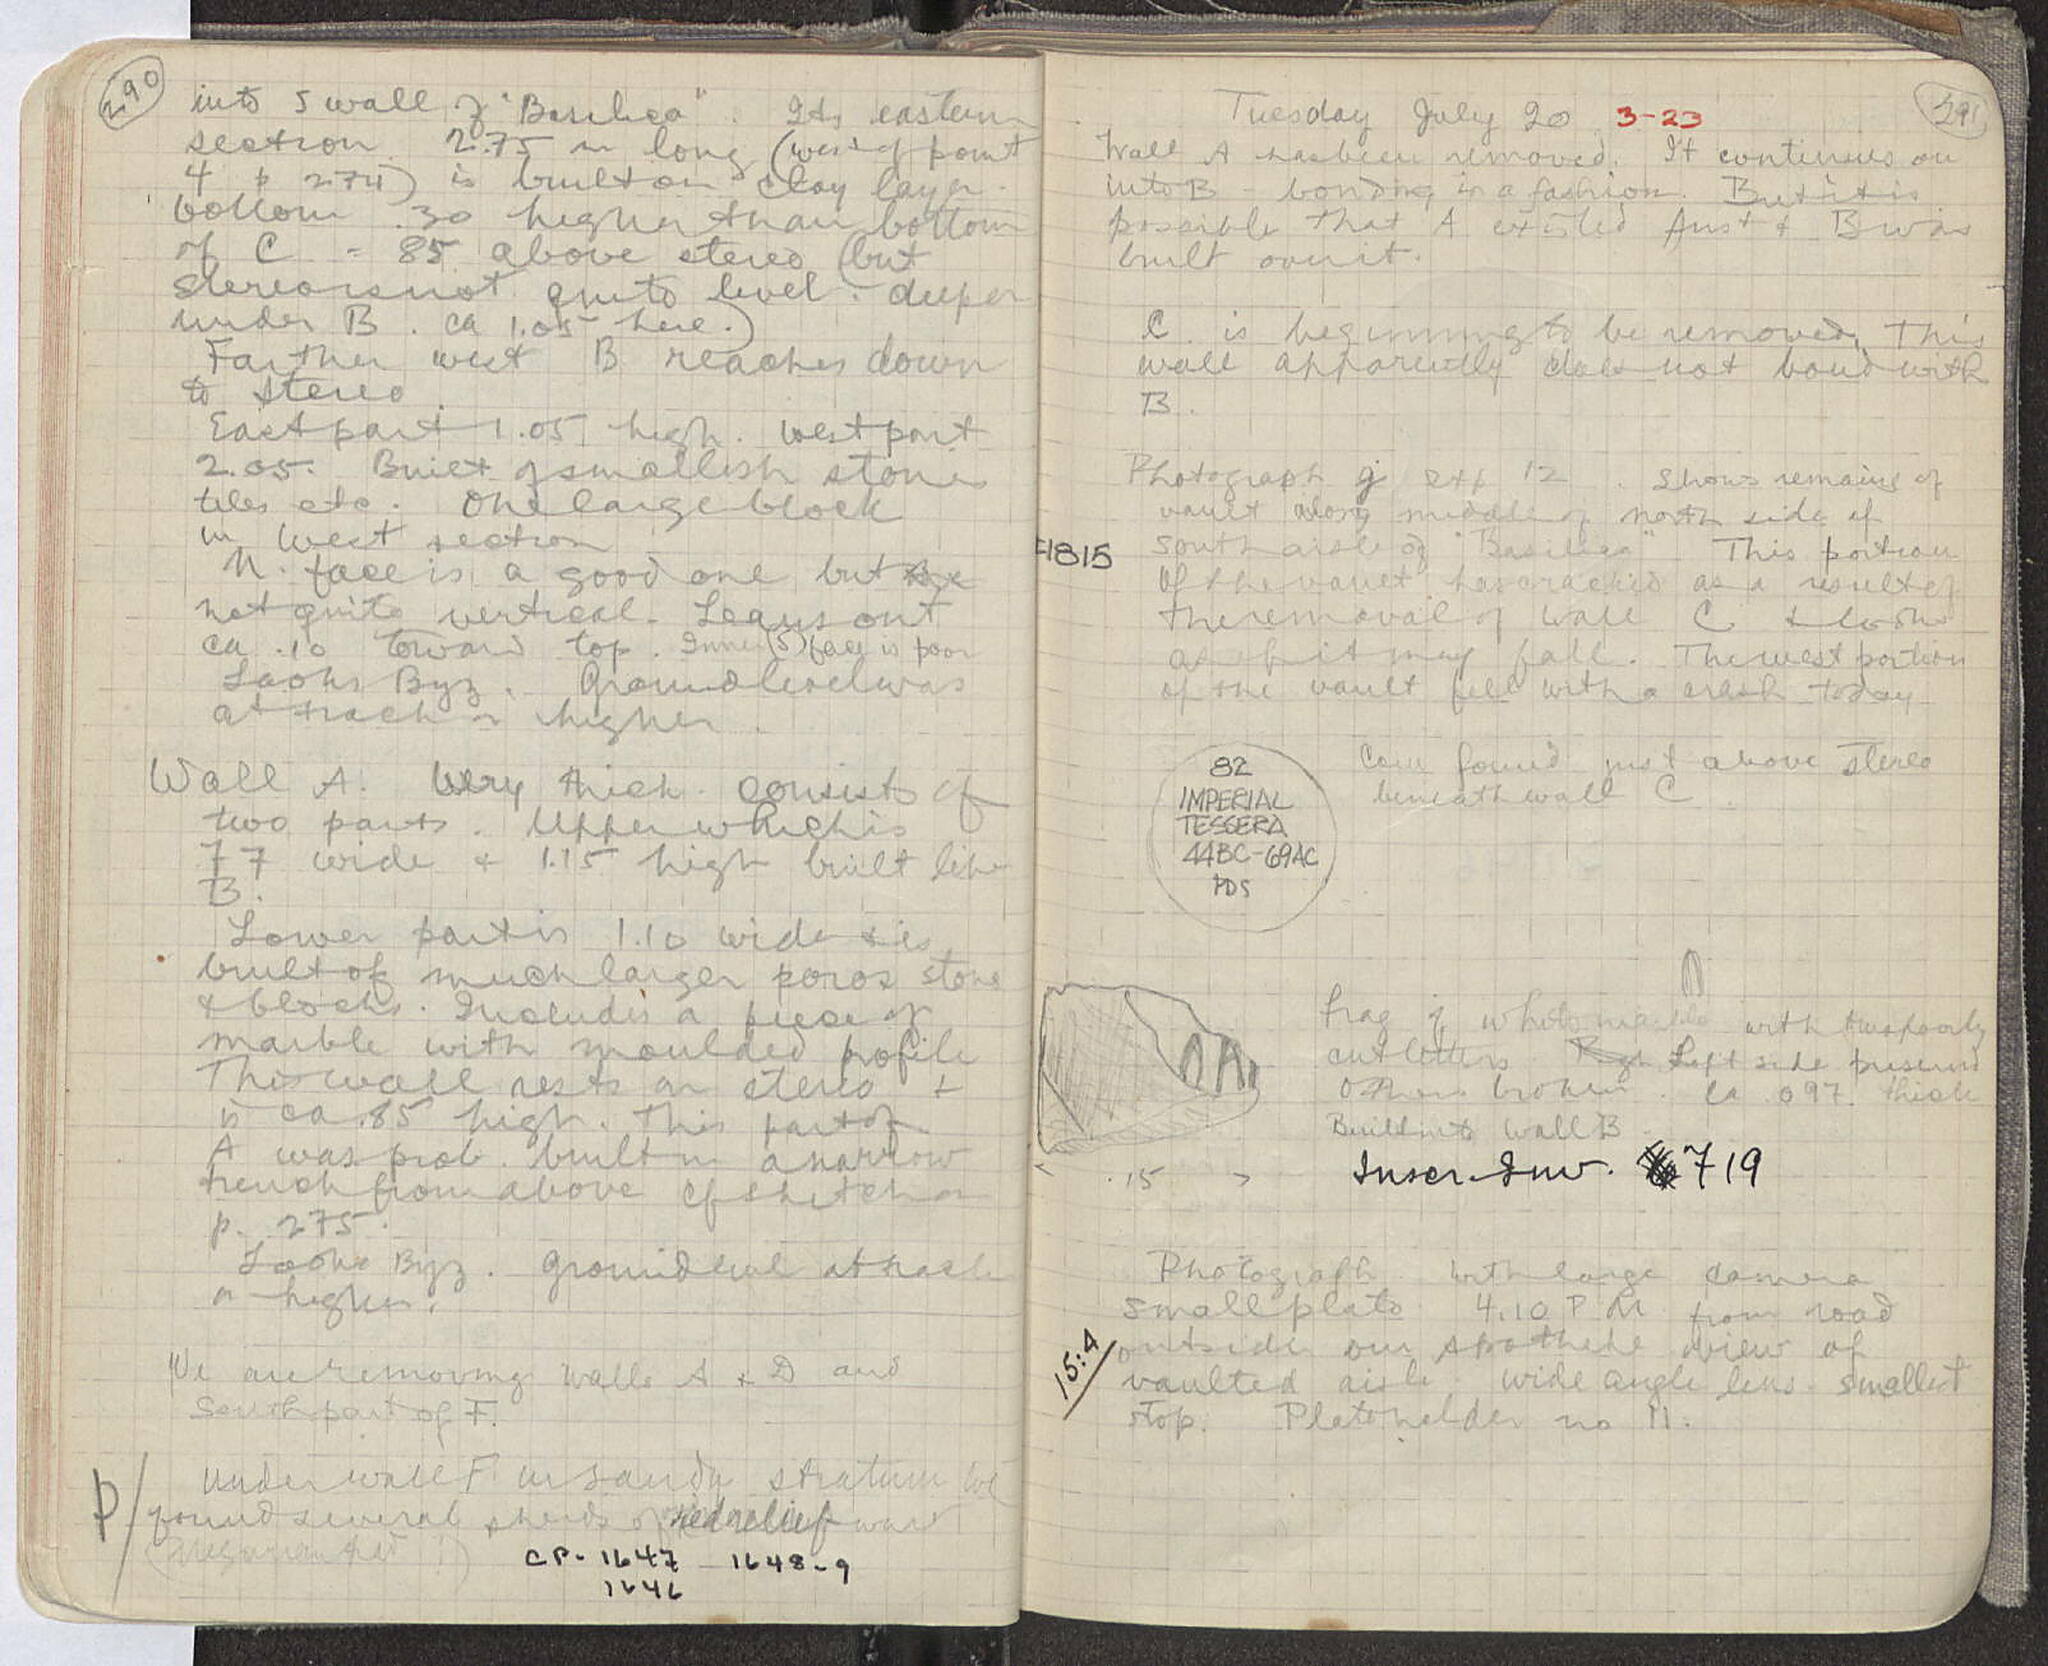 290
into S wall of "Basilica". Its eastern
section 2.75 m long (west of point
4 p 274) is built on clay layer.
bottom .30 higher than bottom
of C = .85 above stereo (but
stereo is not quite level. deeper
under B. ca 1.05 here.)
Farther west B reaches down
to stereo.
East part 1.05 high. West part
2.05. Built of smallish stones
tiles etc. One large block
in west section
N. face is a good one but
not quite vertical. Leans out
ca .10 toward top. Inner (S) face is poor
Looks Byz. Ground level was
at track or higher.
Wall A. Very thick. consists of
two parts. Upper which is
.77 wide & 1.15 high built like
B.
Lower part is 1.10 wide & is
built of much larger poros stone
& blocks. Includes a piece of
marble with moulded profile
This wall rests on stereo &
is ca .85 high. This part of
A was prob. built in a narrow
trench from above cf sketch on
p. 275.
Looks Byz. Ground level at track
or higher.
We are removing walls A & D and
South part of F.
Under wall F in sandy stratum we
p/ found several sherds of red relief ware
CP- 1647 1648-9
1646
291
Tuesday July 20 3-23
Wall A has been removed. It continues on
into B - bonding in a fashion. But it is
possible that A existed first & B was
built over it.
C is beginning to be removed. This
wall apparently does not bond with
B.
Photograph g exp 12. Shows remains of
vault along middle of north side of
1815 south aisle of "Basilica" This portion
of the vault has cracked as a result of
the removal of wall C & looks
as if it may fall. The west portion
of the vault fell with a crash today
82
IMPERIAL
TESSERA
44BC-69AC
PDS
Coin found just above stereo
beneath wall C.
Frag of white marble with two poorly
cut letters. Left side preserved
Others broken. Ca .097 thick
Built into wall B
.15
Inscr. Inv. 719
Photograph with large camera
small plate 4.10 PM from road
outside our apotheke view of
15:4
vaulted aisle. wide angle lens. smallest
stop. Plateholder no 11.